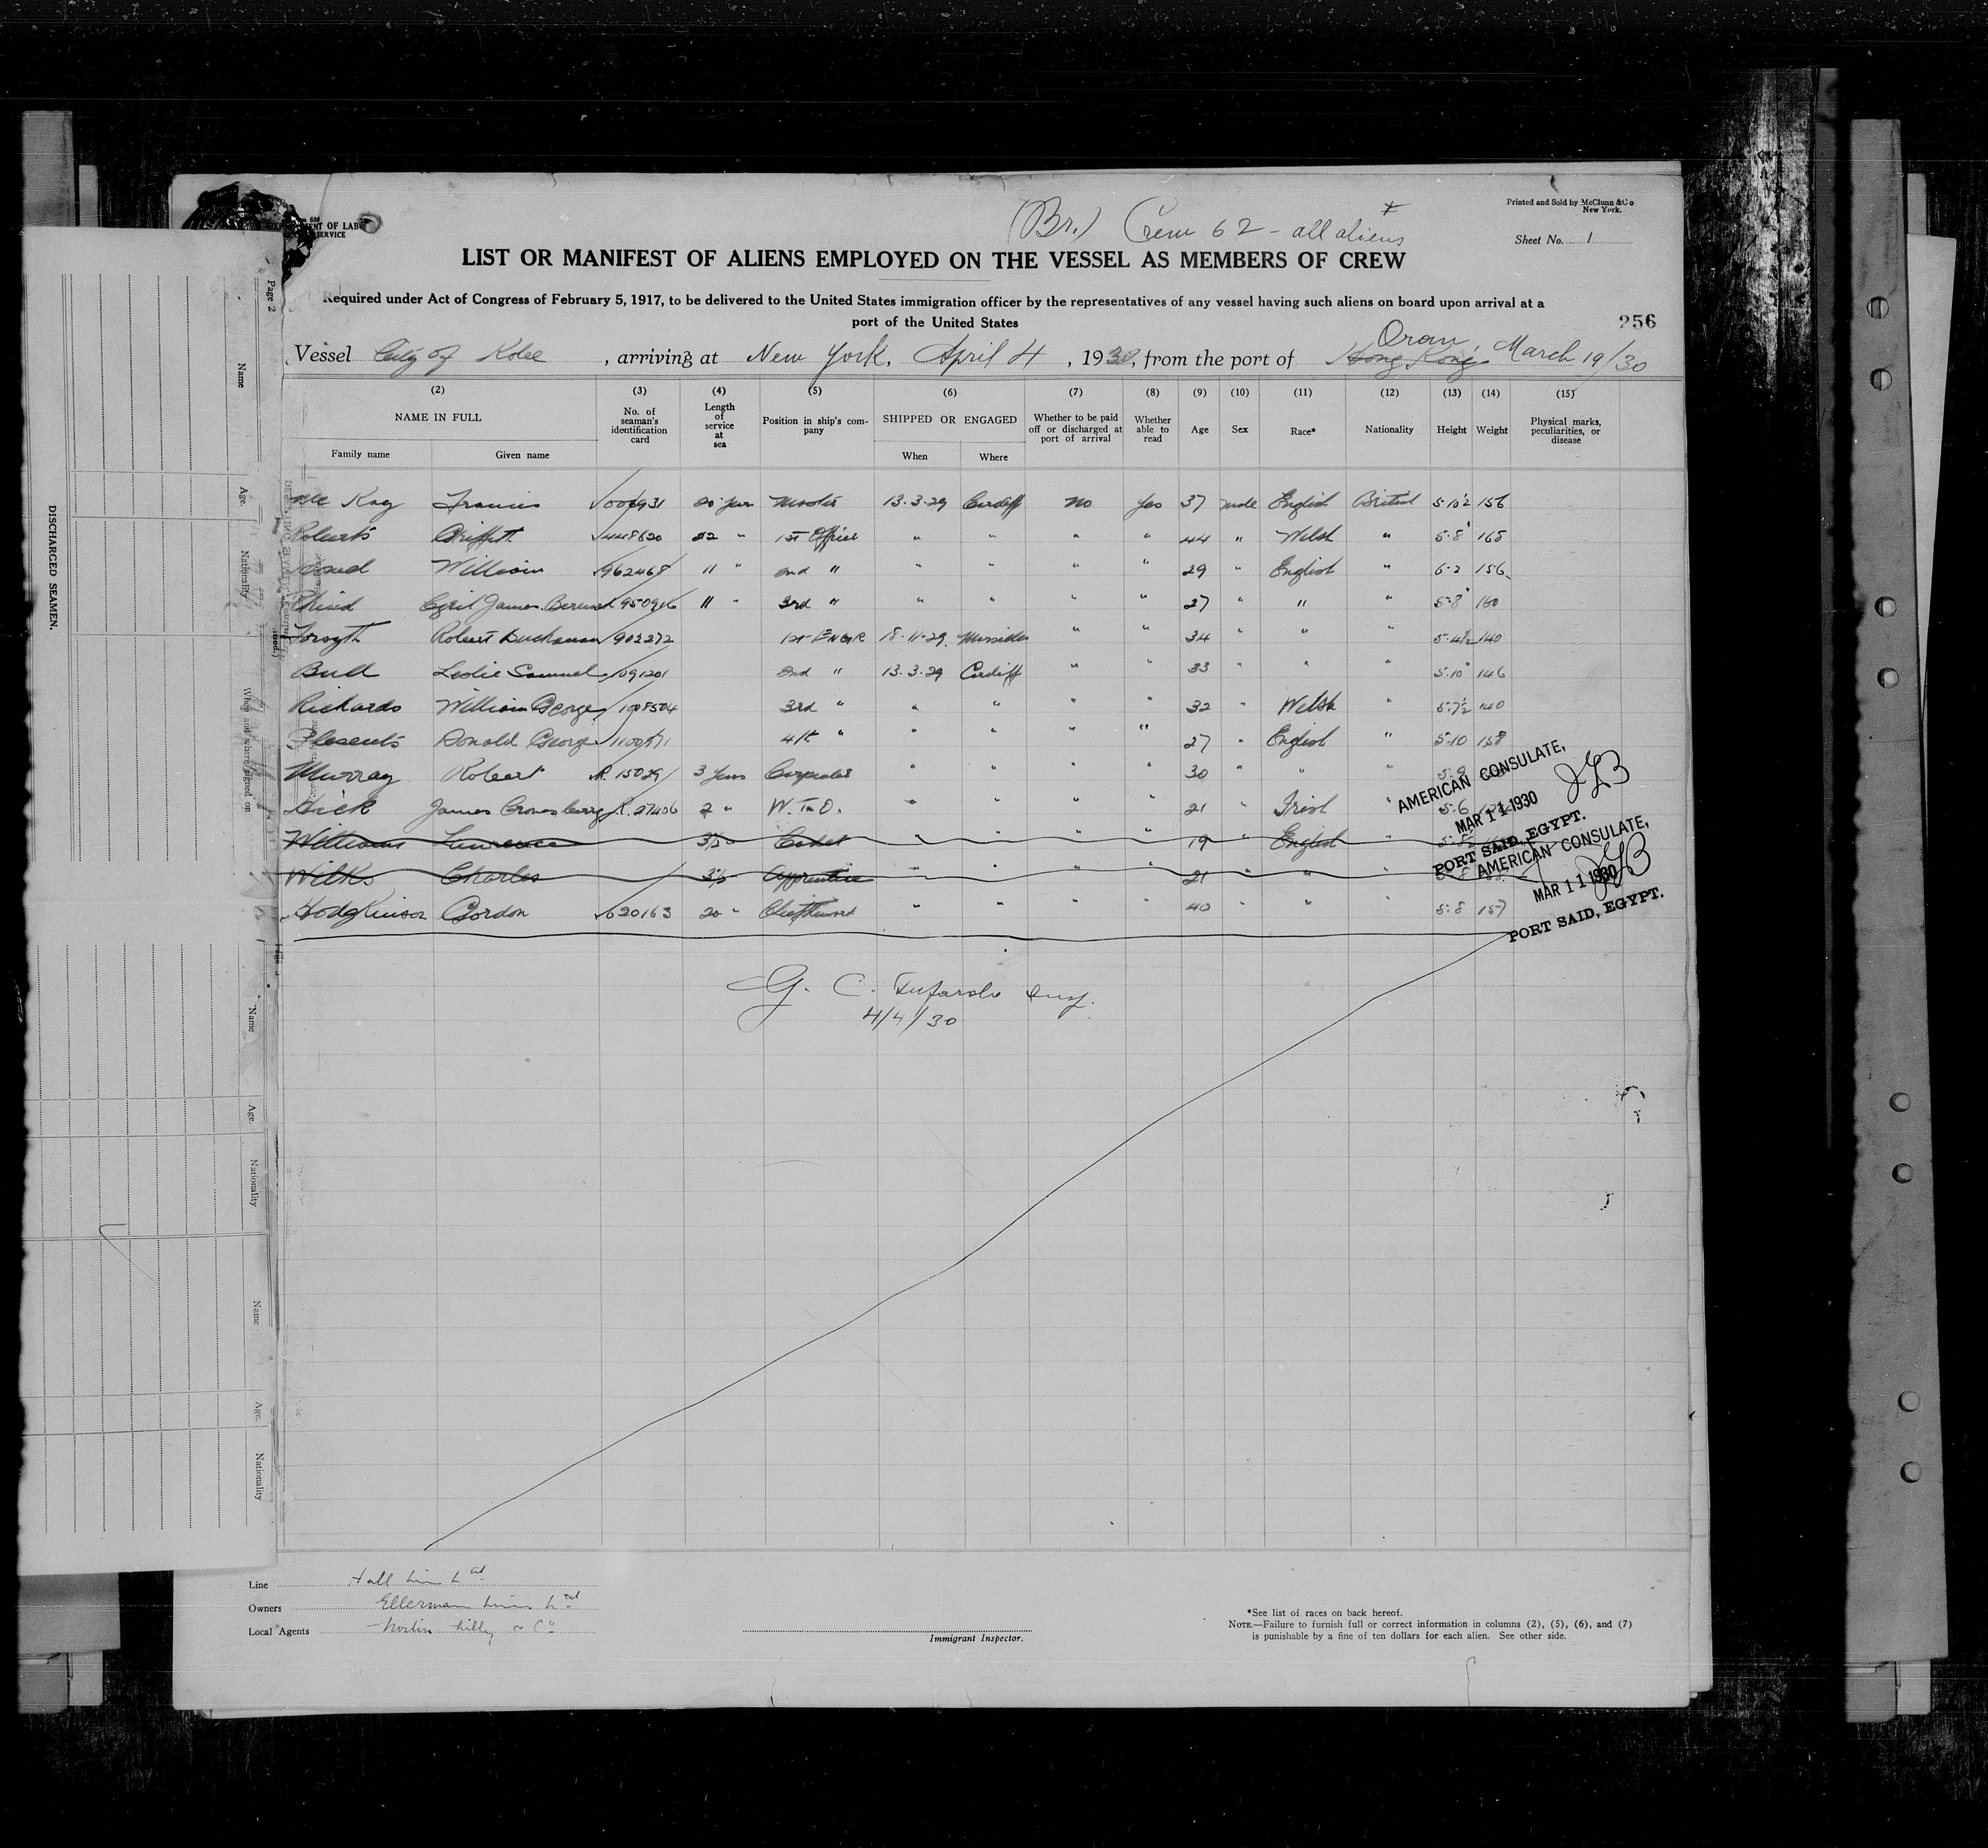 (Br.) Crew 62 - all aliens
Printed and Sold by McClunn & Co
New York.
Sheet No. 1
LIST OR MANIFEST OF ALIENS EMPLOYED ON THE VESSEL AS MEMBERS OF CREW
Required under Act of Congress of February 5, 1917, to be delivered to the United States immigration officer by the representatives of any vessel having such aliens on board upon arrival at a
port of the United States
256
Vessel City of Kobe, arriving at New York, April 4, 1930, from the port of Hong Kong Oran, March 19/30
(2) (3) (4) (5) (6) (7) (8) (9) (10) (11) (12) (13) (14) (15)
NAME IN FULL No. of seaman's identification card Length of service at sea Position in ship's company SHIPPED OR ENGAGED Whether to be paid off or discharged at port of arrival Whether able to read Age Sex Race* Nationality Height Weight Physical marks, peculiarities, or disease
Family name Given name When Where
Mc Kay Francis 20 yrs Master 13.3.29 Cardiff No Yes 37 male English British 5-10½ 156
Roberts Griffith 448620 " 1st Officer " " " " 44 " Welsh " 5-8 165
William 962468 11 " 2nd " " " " " 29 " English " 6-2 156
Cyril James 11 " 3rd " " " " " 27 " " " 5-8 160
Forsyth Robert Buchanan 902272 1st ENGR 18-11-29 " " 34 " " " 5-4½ 140
Bull Leslie Samuel 1091201 2nd " 13.3.29 Cardiff " " 33 " " " 5-10 146
Richards William George 1008504 3rd " " " " " 32 " Welsh " 5-7½ 140
Donald George 4th " " " " " 27 " English " 5-10 158
Murray Robert R. 15029 3 years Carpenter " " " " 30 " " "
James R. 27406 2 " W.T.O. " " " " 21 " Irish " 5-6
Williams Lawrence 3½ Cadet " " " " 19 " English "
Wilks Charles 3½ Apprentice " " " " 21 " " "
Hodgkinson Gordon 620163 20 " Chief Steward " " " " 40 " " " 5-8 157
AMERICAN CONSULATE,
MAR 11 1930
PORT SAID, EGYPT.
AMERICAN CONSULATE,
MAR 11 1930
PORT SAID, EGYPT.
G. C. Insp.
4/4/30
Line Hall Line Ltd
Owners Ellerman Lines Ltd
Local Agents Norton Lilly & Co
Immigrant Inspector.
*See list of races on back hereof.
NOTE.—Failure to furnish full or correct information in columns (2), (5), (6), and (7)
is punishable by a fine of ten dollars for each alien. See other side.
DISCHARGED SEAMEN.
Page 2
Name
Age.
Nationality
When and where signed on
Name
Age.
Nationality
Name
Age.
Nationality